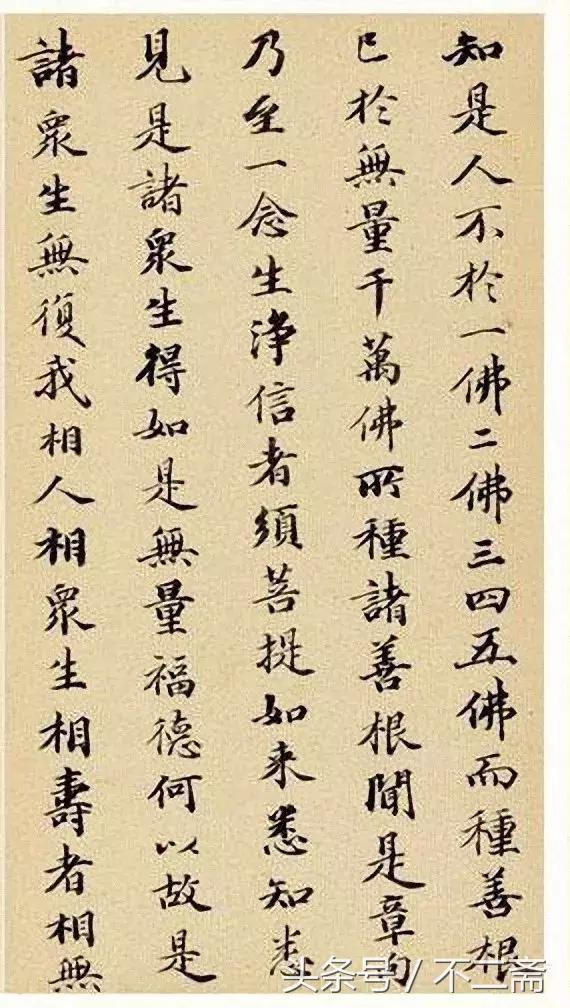 知是人不於一佛二佛三四五佛而種善根
已於無量千萬佛所種諸善根聞是章句
乃至一念生淨信者須菩提如来悉知悉
見是諸衆生得如是無量福德何以故是
諸衆生無復我相人相衆生相壽者相無
头条号 / 不二斋